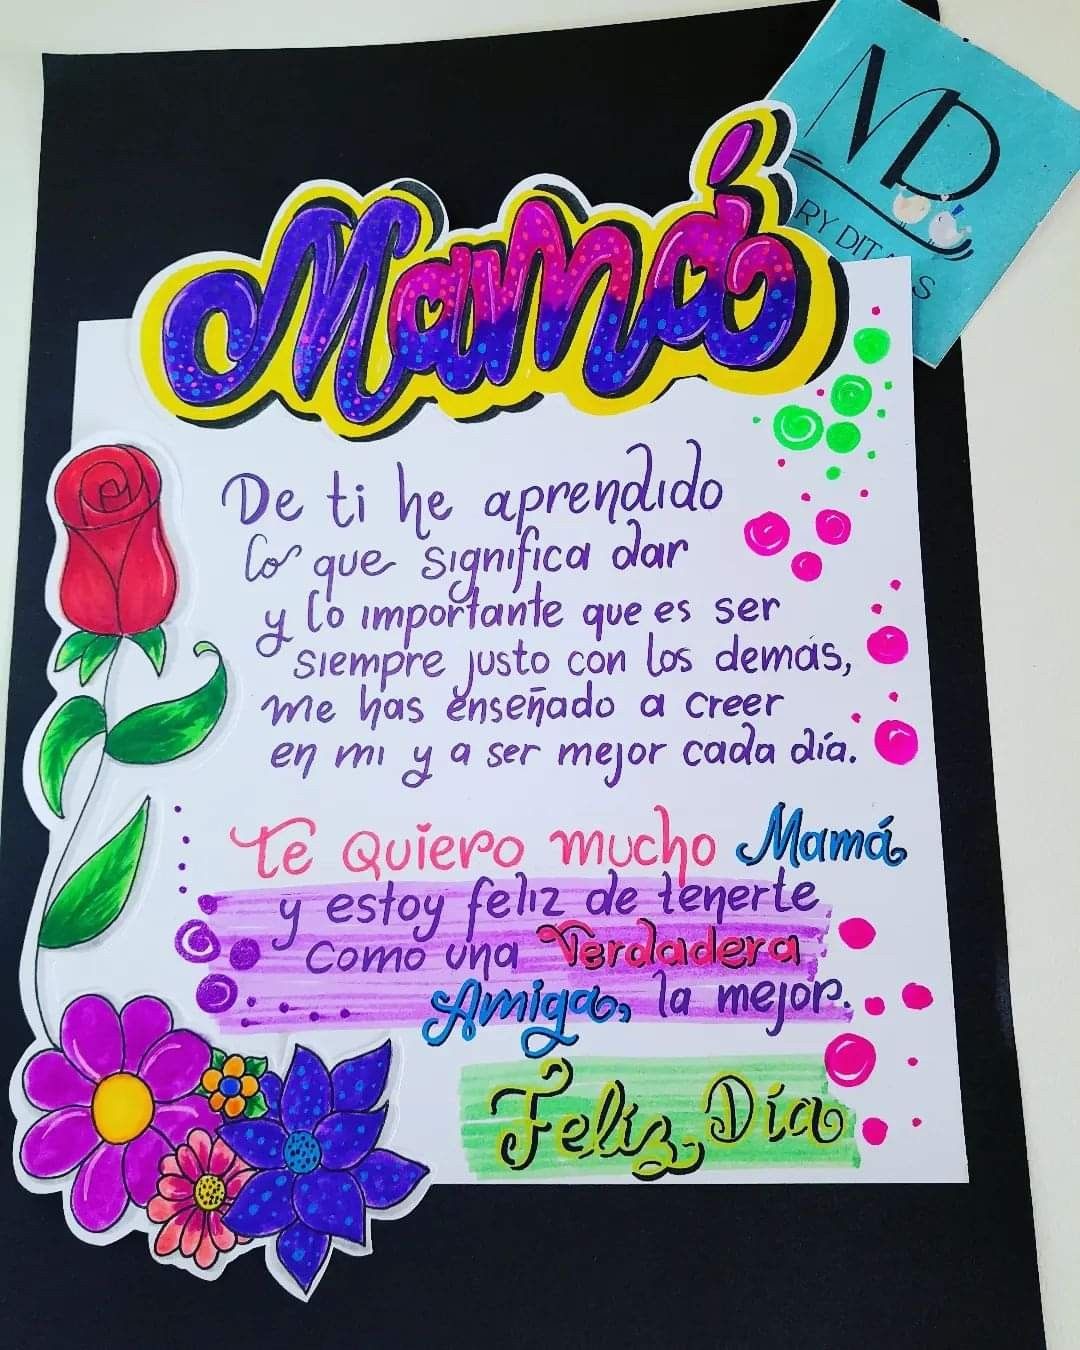 MD
RY DIT
S
Mamá
De ti he aprendido
lo que significa dar
y lo importante que es ser
siempre justo con los demás,
me has enseñado a creer
en mi y a ser mejor cada día.
Te Quiero mucho Mamá
y estoy feliz de tenerte
como una Verdadera
Amiga, la mejor.
Feliz Día